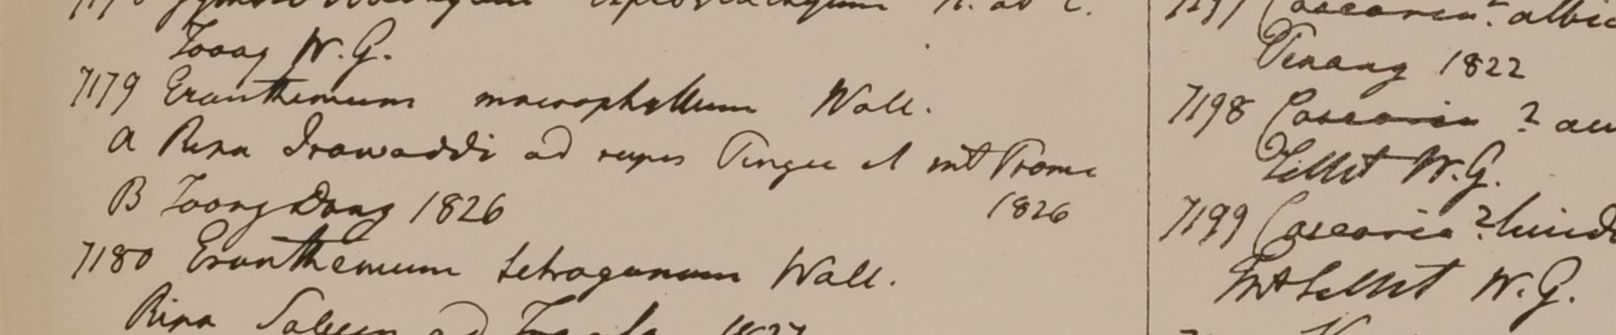 Toong W.G.
7179 Eranthemum macrophyllum Wall.
a Ripa Irawaddi ad rupes Pingee et mt Prome
B Toong Dong 1826 1826
7180 Eranthemum tetragonum Wall.
Ripa Saluen ad
Penang 1822
7198 Casearia ?
Sillet W.G.
7199 Casearia ?
Mt Sillet W.G.